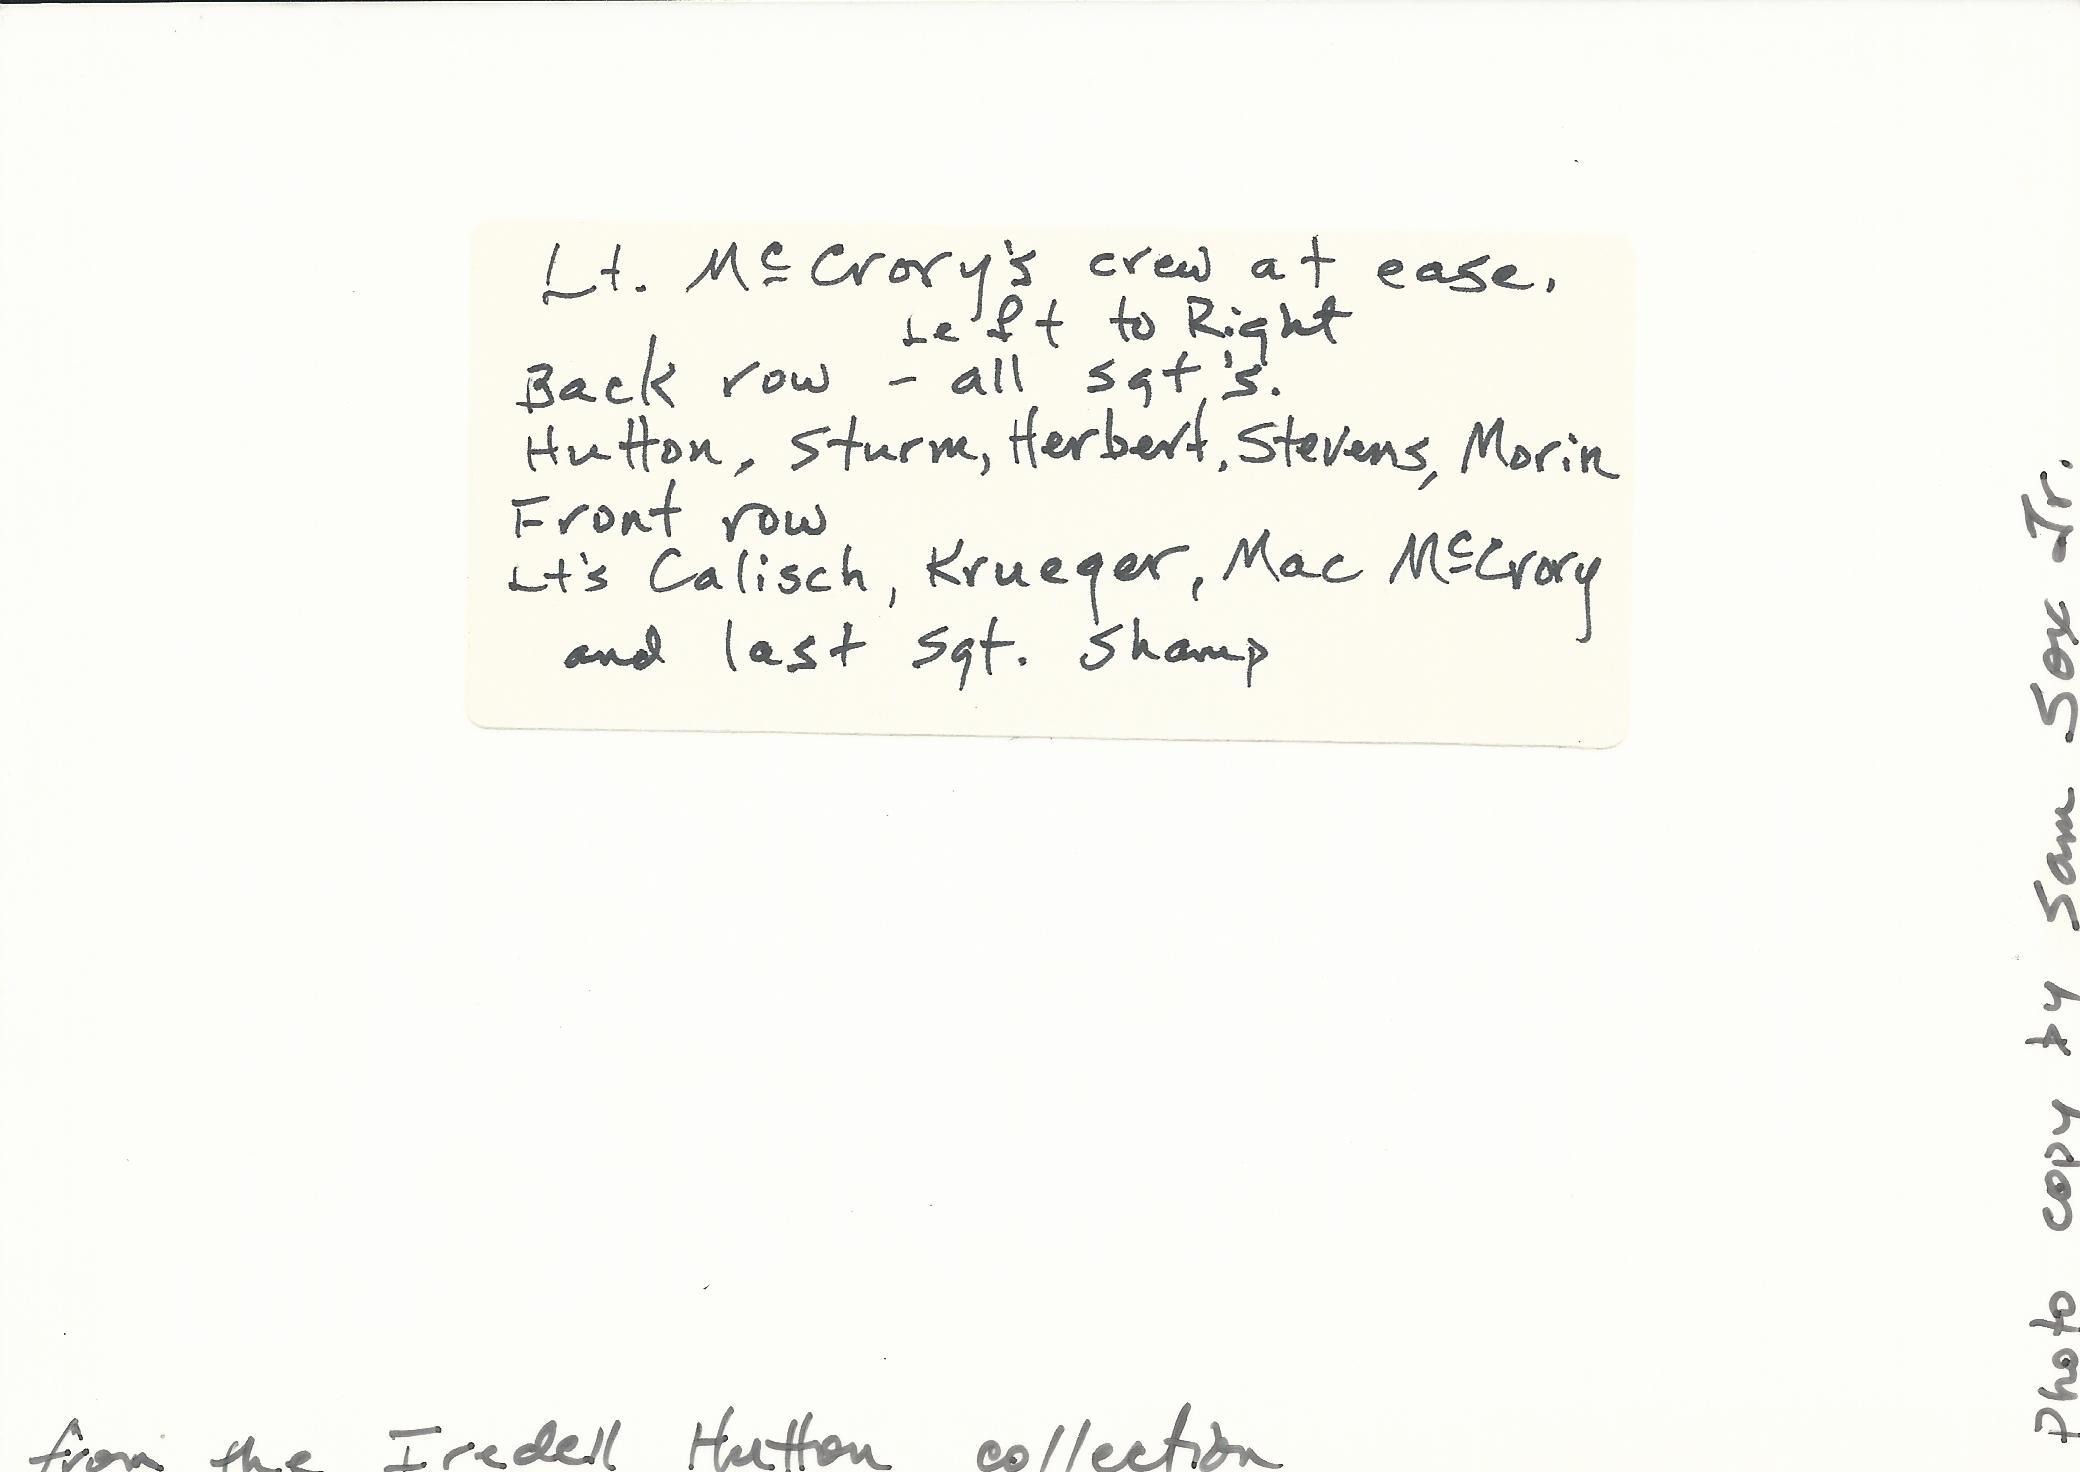 Lt. McCrory's crew at ease.
Left to Right
Back row - all sgt's.
Hutton, Sturm, Herbert, Stevens, Morin
Front row
Lt's Calisch, Krueger, Mac McCrory
and last Sgt. Shamp
from the Iredell Hutton collection
Photo copy by Sam Sox Jr.